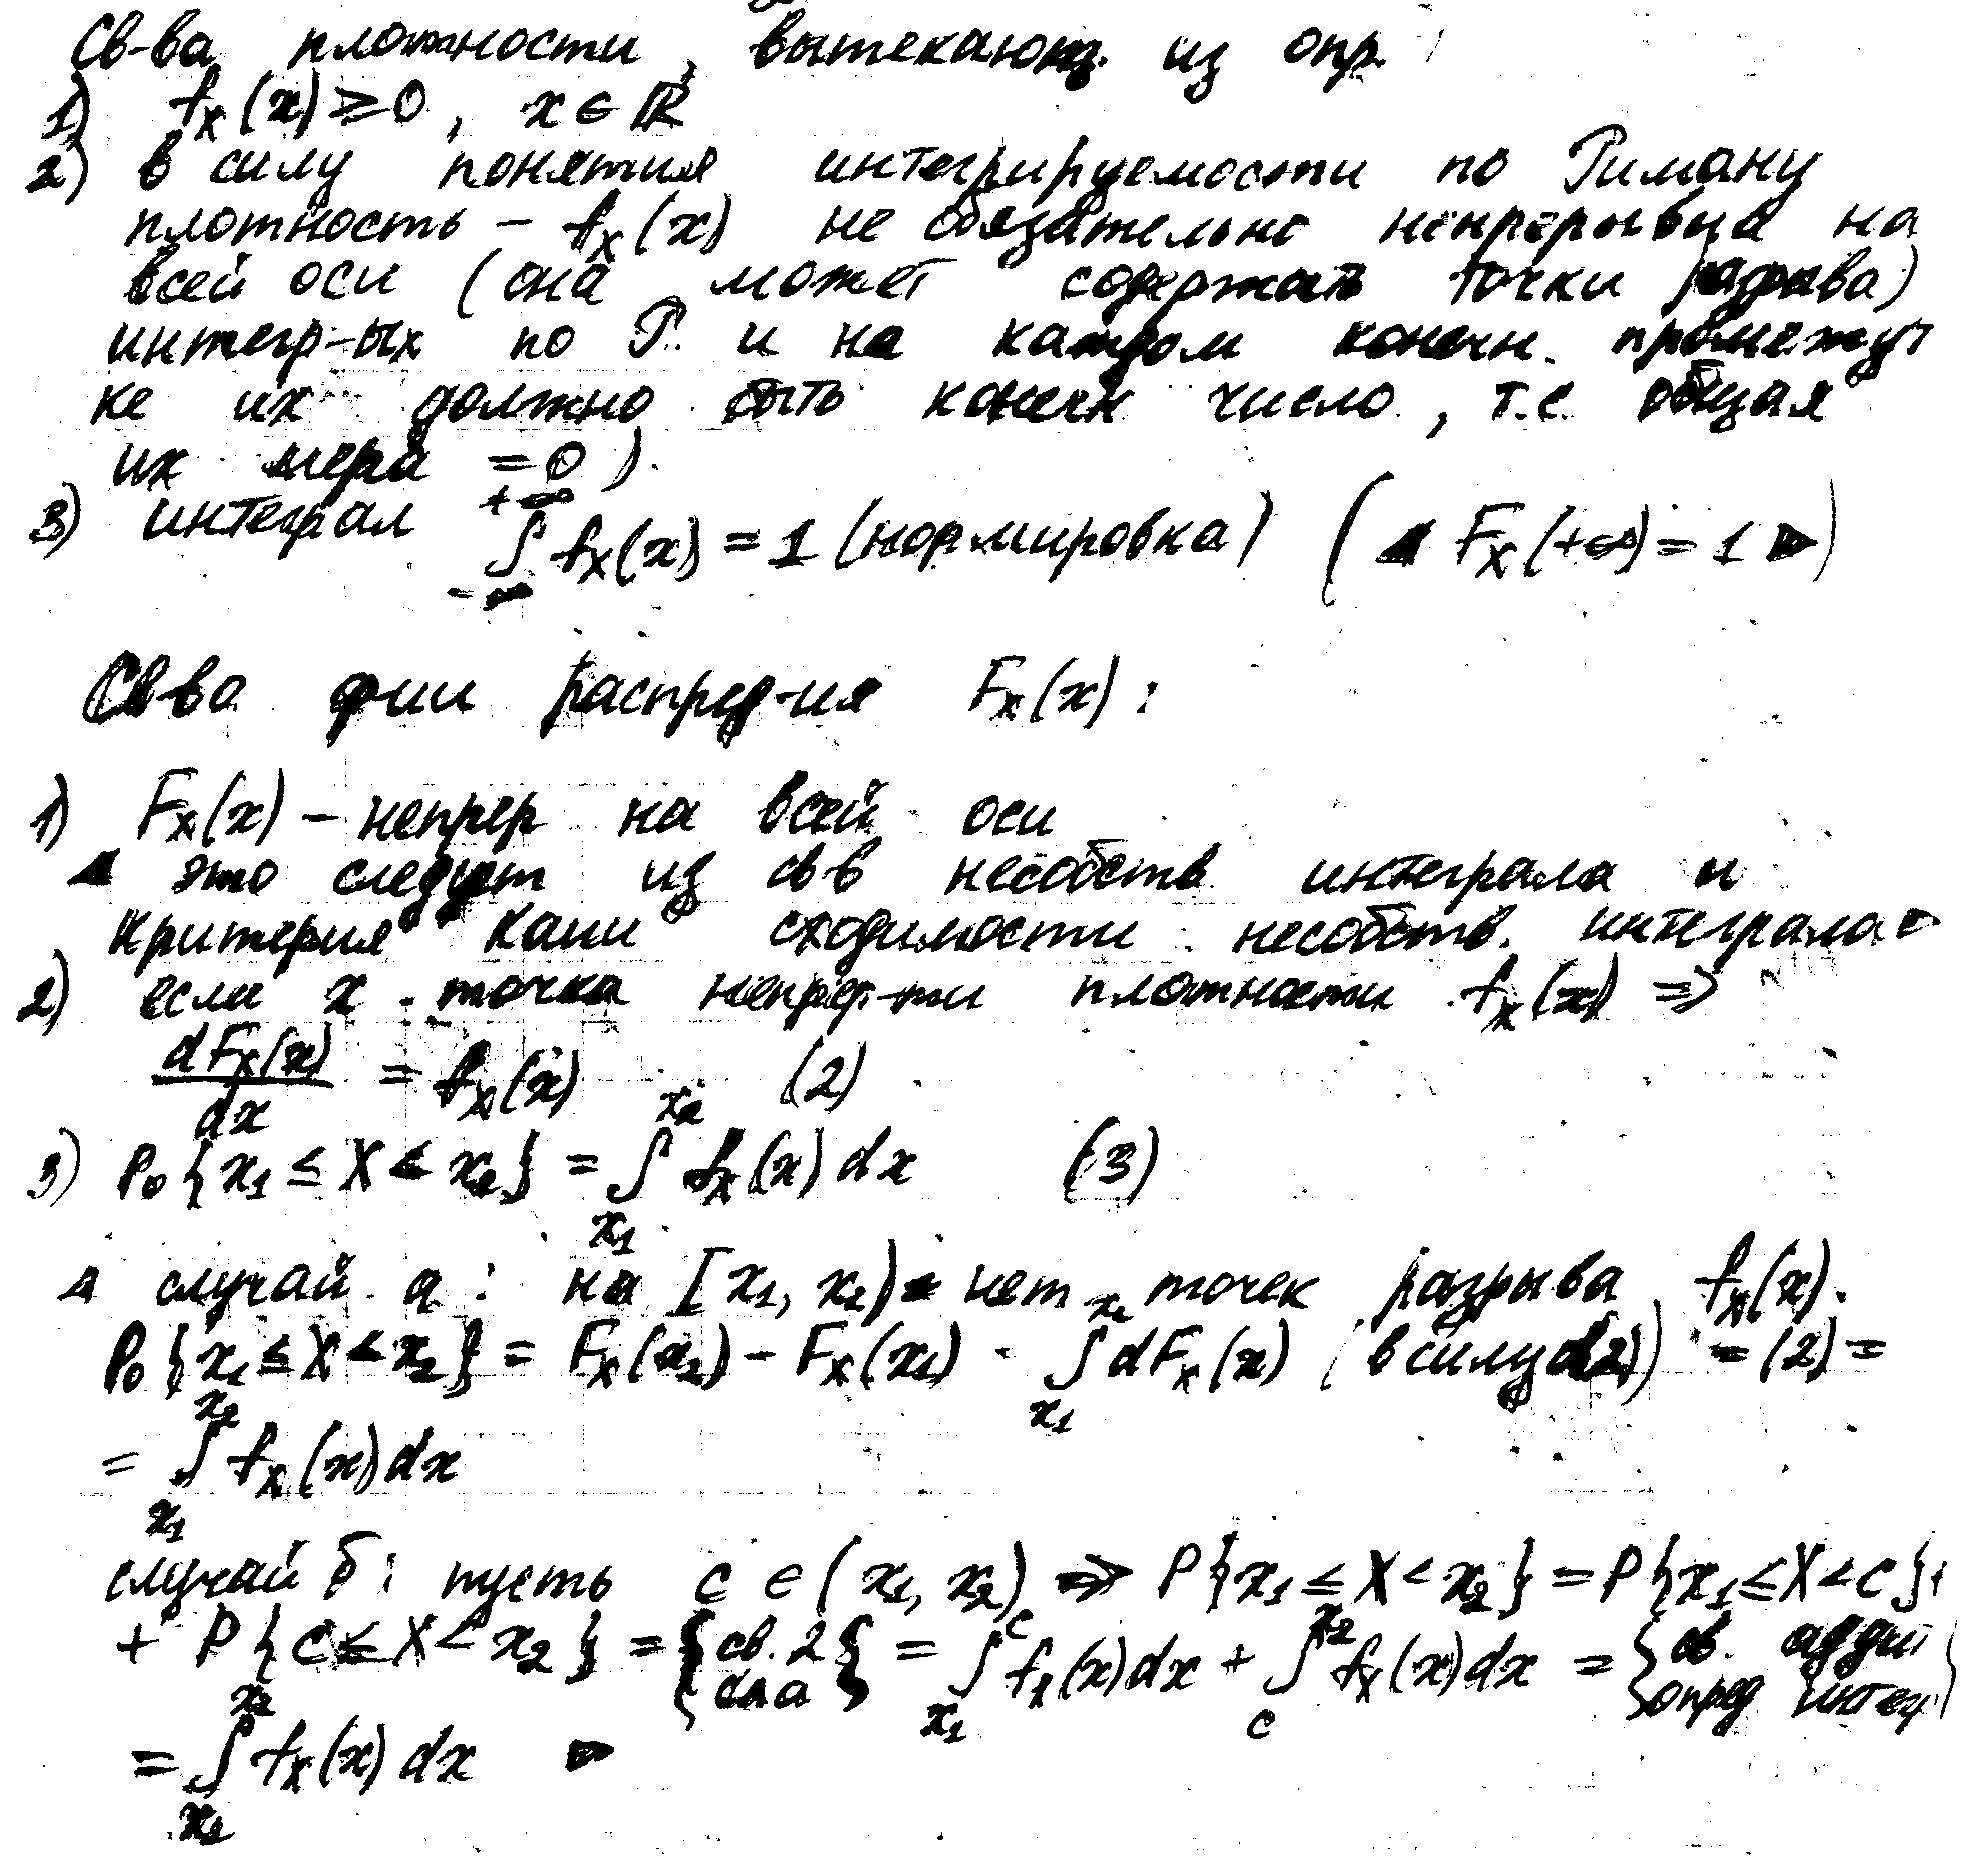 Св-ва плотности, вытекающ. из опр.
1) f_X(x) ≥ 0, x ∈ ℝ
2) в силу понятия интегрируемости по Риману
плотность – f_X(x) не обязательно непрерывна на
всей оси (она может содержать точки разрыва)
интегр-ых по Р. и на каждом конечн. промежут
ке их должно быть конечн число, т.е. общая
их мера = 0).
3) интеграл ∫_{-∞}^{+∞} f_X(x) = 1 (нормировка) (◄ F_X(+∞) = 1 ►)
Св-ва ф-ии распред-ия F_X(x):
1) F_X(x) – непрер на всей оси
◄ это следует из св в несобств. интеграла и
критерия Каши сходимости несобств. интеграла ►
2) если x - точка непрер-ти плотности f_X(x) ⇒
dF_X(x)/dx = f_X(x) (2)
3) P₀{x₁ ≤ X < x₂} = ∫_{x₁}^{x₂} f_X(x) dx (3)
◄ случай а: на [x₁, x₂) - нет точек разрыва f_X(x).
P₀{x₁ ≤ X < x₂} = F_X(x₂) – F_X(x₁) - ∫_{x₁}^{x₂} dF_X(x) (в силу 2) = (2) =
= ∫_{x₁}^{x₂} f_X(x) dx
случай б: пусть c ∈ (x₁, x₂) ⇒ P{x₁ ≤ X < x₂} = P{x₁ ≤ X < c} +
+ P{c ≤ X < x₂} = {св. 2 сл а} = ∫_{x₁}^{c} f_X(x) dx + ∫_{c}^{x₂} f_X(x) dx = {св. аддит опред интег}
= ∫_{x₁}^{x₂} f_X(x) dx ►